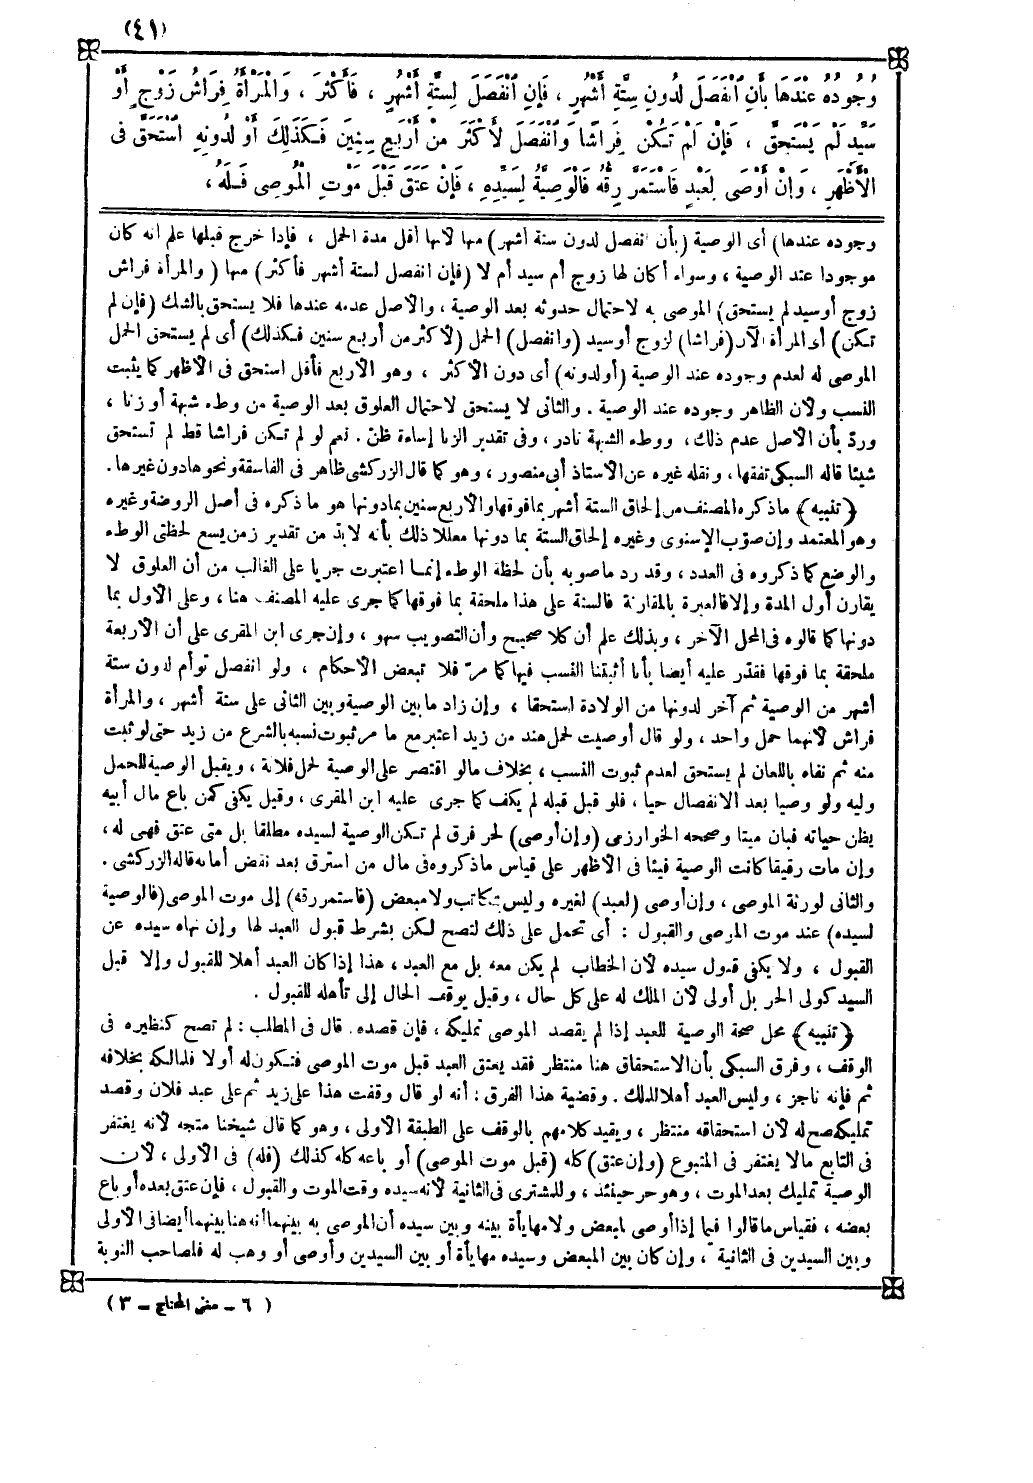 (٤١)
وُجُودُهُ عِنْدَهَا بِأَنِ انْفَصَلَ لِدُونِ سِتَّةِ أَشْهُرٍ ، فَإِنِ انْفَصَلَ لِسِتَّةِ أَشْهُرٍ ، فَأَكْثَرَ ، وَالْمَرْأَةُ فِرَاشُ زَوْجٍ أَوْ
سَيِّدٍ لَمْ يَسْتَحِقَّ ، فَإِنْ لَمْ تَكُنْ فِرَاشًا وَانْفَصَلَ لِأَكْثَرَ مِنْ أَرْبَعِ سِنِينَ فَكَذَلِكَ أَوْ لِدُونِهِ اسْتَحَقَّ فِى
الْأَظْهَرِ ، وَإِنْ أَوْصَى لِعَبْدٍ فَاسْتَمَرَّ رِقُّهُ فَالْوَصِيَّةُ لِسَيِّدِهِ ، فَإِنْ عَتَقَ قَبْلَ مَوْتِ الْمُوصِى فَلَهُ ،
وجوده عندها) أى الوصية (بأن انفصل لدون ستة أشهر) منها لأنها أقل مدة الحمل ، فإذا خرج قبلها علم أنه كان
موجودا عند الوصية ، وسواء أكان لها زوج أم سيد أم لا (فإن انفصل لستة أشهر فأكثر) منها ( والمرأة فراش
زوج أو سيد لم يستحق) الموصى به لاحتمال حدوثه بعد الوصية ، والأصل عدمه عندها فلا يستحق بالشك (فإن لم
تكن) أى المرأة الآن (فراشا) لزوج أو سيد (وانفصل) الحمل (لأكثر من أربع سنين فكذلك) أى لم يستحق الحمل
الموصى له لعدم وجوده عند الوصية (أو لدونه) أى دون الأكثر ، وهو الأربع فأقل استحق فى الأظهر كما يثبت
النسب ولأن الظاهر وجوده عند الوصية . والثانى لا يستحق لاحتمال العلوق بعد الوصية من وطء شبهة أو زنا ،
وردّ بأن الأصل عدم ذلك ، ووطء الشبهة نادر ، وفى تقدير الزنا إساءة ظنّ . نعم لو لم تكن فراشا قط لم تستحق
شيئا قاله السبكى تفقها ، ونقله غيره عن الأستاذ أبى منصور ، وهو كما قال الزركشى ظاهر فى الفاسقة ونحوها دون غيرها .
﴿تنبيه﴾ ما ذكره المصنف من إلحاق الستة أشهر بما فوقها والأربع سنين بما دونها هو ما ذكره فى أصل الروضة وغيره
وهو المعتمد وإن صوّب الإسنوى وغيره إلحاق الستة بما دونها معللا ذلك بأنه لابدّ من تقدير زمن يسع لحظتى الوطء
والوضع كما ذكروه فى العدد ، وقد رد ما صوبه بأن لحظة الوطء إنما اعتبرت جريا على الغالب من أن العلوق لا
يقارن أول المدة وإلا فالعبرة بالمقارنة فالستة على هذا ملحقة بما فوقها كما جرى عليه المصنف هنا ، وعلى الأول بما
دونها كما قالوه فى المحل الآخر ، وبذلك علم أن كلا صحيح وأن التصويب سهو ، وإن جرى ابن المقرى على أن الأربعة
ملحقة بما فوقها فقدّر عليه أيضا بأنا أثبتنا النسب فيها كما مرّ فلا تبعض الأحكام ، ولو انفصل توأم لدون ستة
أشهر من الوصية ثم آخر لدونها من الولادة استحقا ، وإن زاد ما بين الوصية وبين الثانى على ستة أشهر ، والمرأة
فراش لأنهما حمل واحد ، ولو قال أوصيت لحمل هند من زيد اعتبر مع ما مر ثبوت نسبه بالشرع من زيد حتى لو ثبت
منه ثم نفاه باللعان لم يستحق لعدم ثبوت النسب ، بخلاف ما لو اقتصر على الوصية لحمل فلانة ، ويقبل الوصية للحمل
وليه ولو وصيا بعد الانفصال حيا ، فلو قبل قبله لم يكف كما جرى عليه ابن المقرى ، وقيل يكفى كمن باع مال أبيه
يظن حياته فبان ميتا وصححه الخوارزمى (وإن أوصى) لحر فرق لم تكن الوصية لسيده مطلقا بل متى عتق فهى له ،
وإن مات رقيقا كانت الوصية فيئا فى الأظهر على قياس ما ذكروه فى مال من استرق بعد نقض أمانه قاله الزركشى .
والثانى لورثة الموصى ، وإن أوصى (لعبد) لغيره وليس بمكاتب ولا مبعض (فاستمر رقه) إلى موت الموصى (فالوصية
لسيده) عند موت الموصى والقبول : أى تحمل على ذلك لتصح لكن بشرط قبول العبد لها وإن نهاه سيده عن
القبول ، ولا يكفى قبول سيده لأن الخطاب لم يكن معه بل مع العبد ، هذا إذا كان العبد أهلا للقبول وإلا قبل
السيد كولى الحر بل أولى لأن الملك له على كل حال ، وقيل يوقف الحال إلى تأهله للقبول .
﴿تنبيه﴾ محل صحة الوصية للعبد إذا لم يقصد الموصى تمليكه ، فإن قصده . قال فى المطلب : لم تصح كنظيره فى
الوقف ، وفرق السبكى بأن الاستحقاق هنا منتظر فقد يعتق العبد قبل موت الموصى فتكون له أولا فلمالكه بخلافه
ثم فإنه ناجز ، وليس العبد أهلا للملك . وقضية هذا الفرق : أنه لو قال وقفت هذا على زيد ثم على عبد فلان وقصد
تمليكه صح له لأن استحقاقه منتظر ، ويقيد كلامهم بالوقف على الطبقة الأولى ، وهو كما قال شيخنا متجه لأنه يغتفر
فى التابع مالا يغتفر فى المتبوع (وإن عتق) كله (قبل موت الموصى) أو باعه كله كذلك (فله) فى الأولى ، لأن
الوصية تمليك بعد الموت ، وهو حر حينئذ ، وللمشترى فى الثانية لأنه سيده وقت الموت والقبول ، فإن عتق بعضه أو باع
بعضه ، فقياس ما قالوا فيما إذا أوصى لمبعض ولا مهايأة بينه وبين سيده أن الموصى به بينهما أنه هنا بينهما أيضا فى الأولى
وبين السيدين فى الثانية ، وإن كان بين المبعض وسيده مهايأة أو بين السيدين وأوصى أو وهب له فلصاحب النوبة
( ٦ – مغنى المحتاج – ٣ )